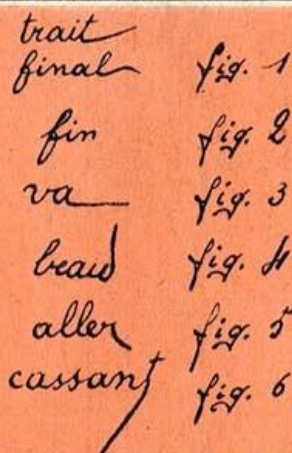 trait
final fig. 1
fin fig. 2
va fig. 3
beau fig. 4
aller fig. 5
cassant fig. 6